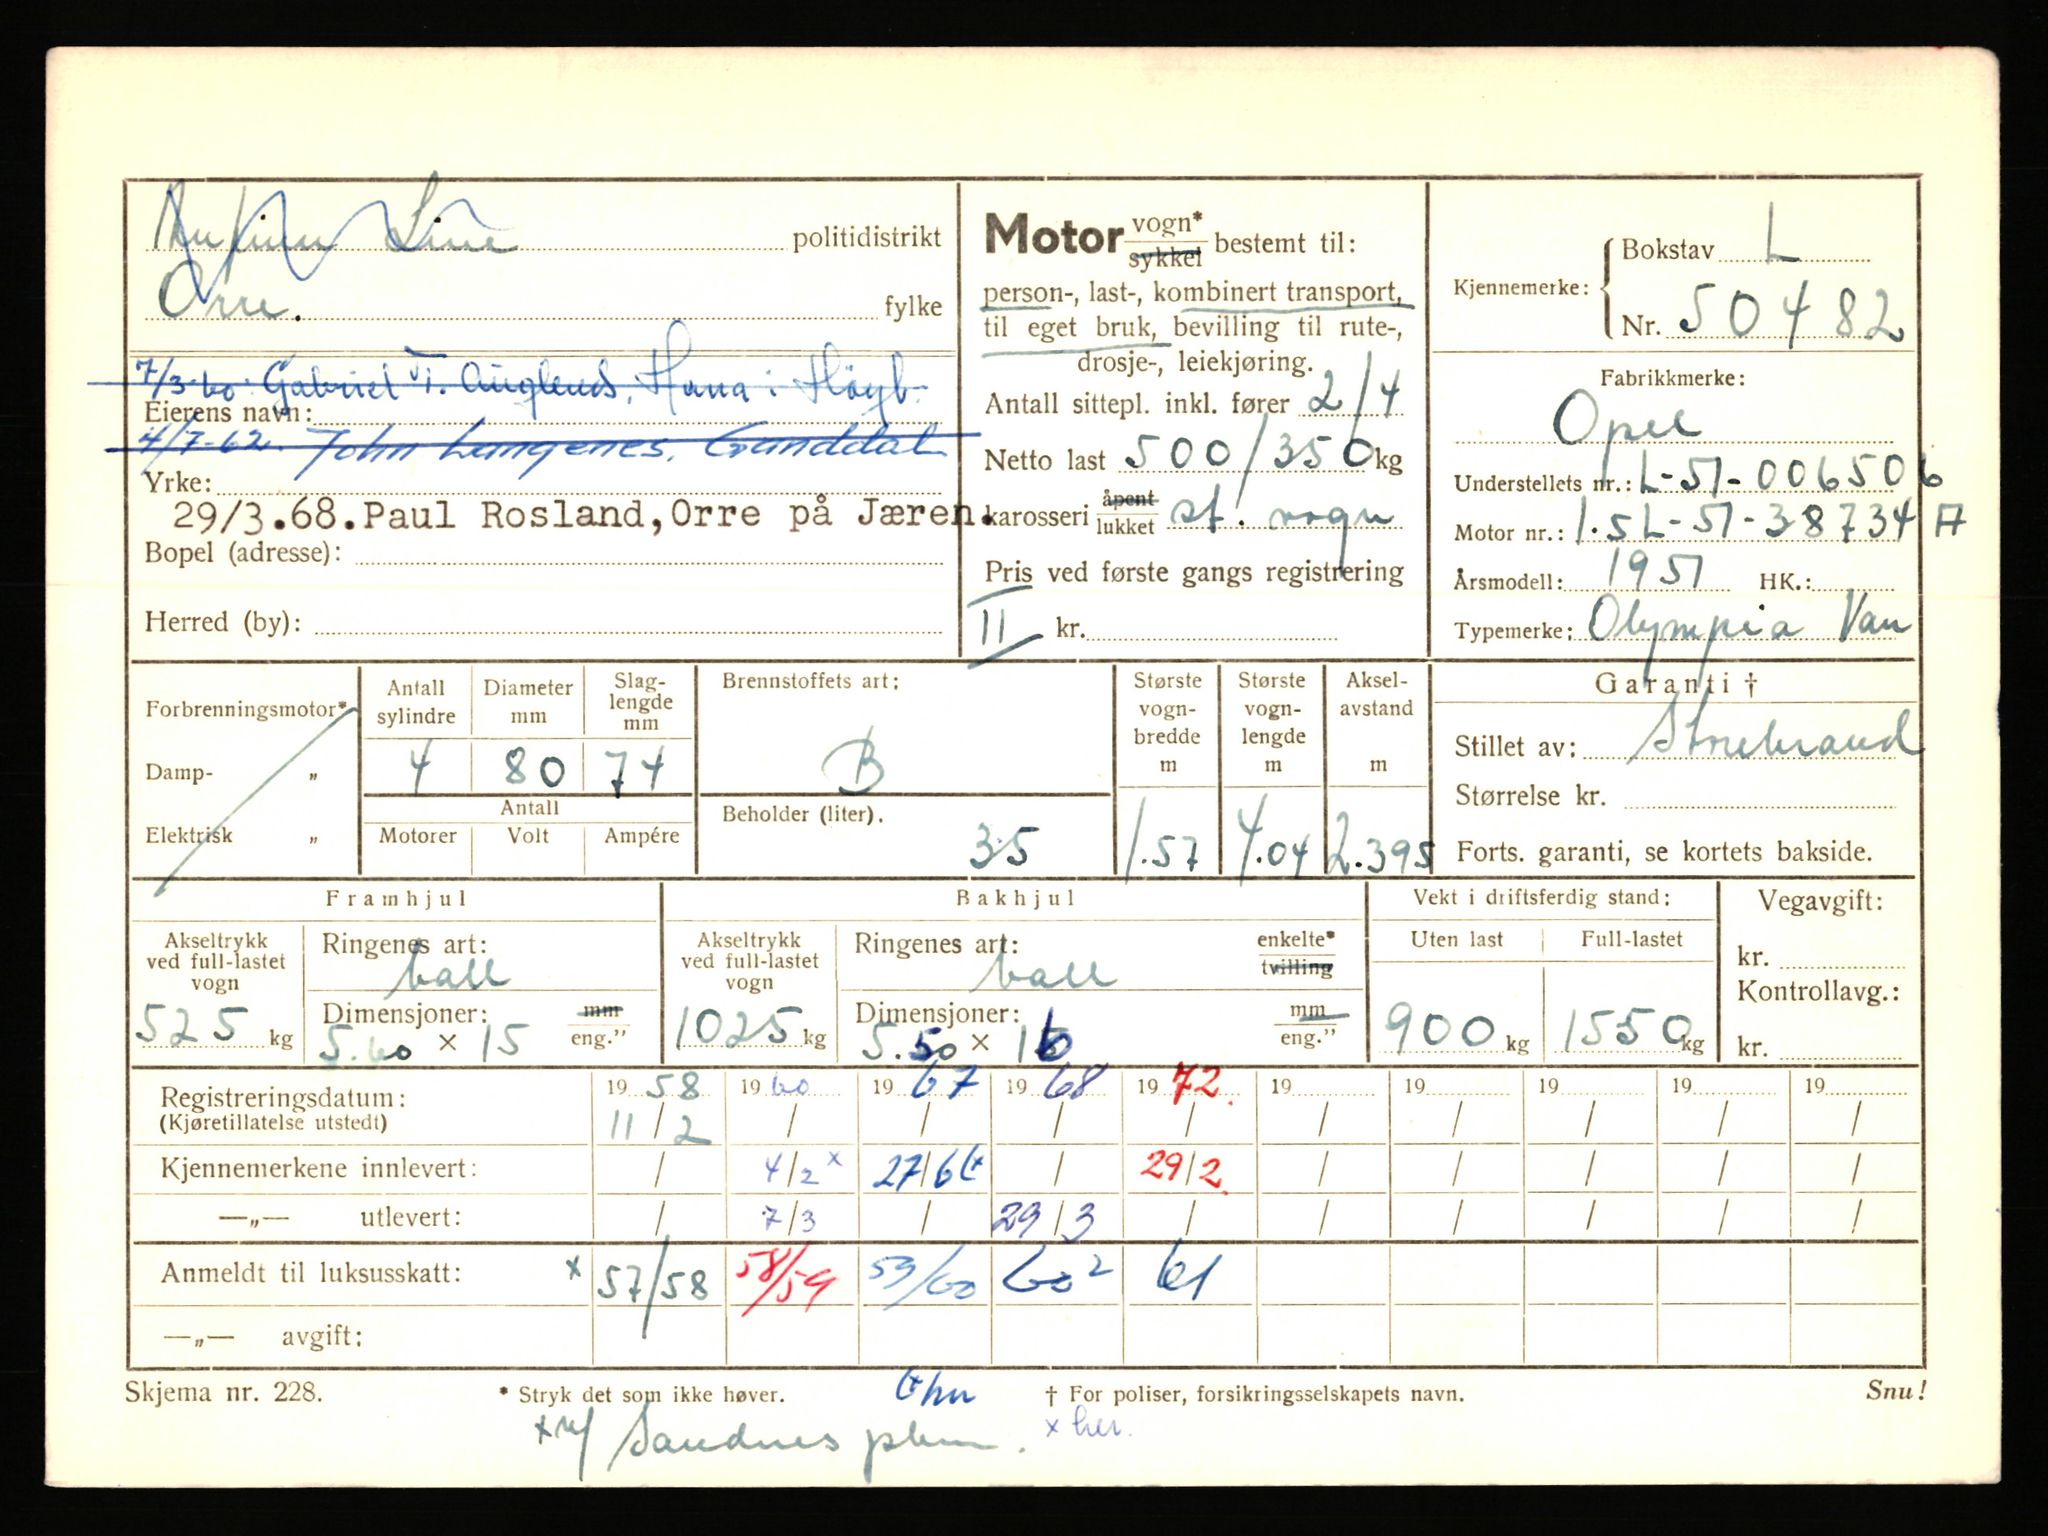 Line politidistrikt
Orre. fylke
7/3-60. Gabriel T. Auglend, Hana i Höyl.
Eierens navn:
4/7-62. John Lungenes, Ganddal
Yrke:
29/3.68.Paul Rosland,Orre på Jæren.
Bopel (adresse):
Herred (by):
Motor vogn* sykkel bestemt til:
person-, last-, kombinert transport,
til eget bruk, bevilling til rute-,
drosje-, leiekjøring.
Antall sittepl. inkl. fører 2/4
Netto last 500/350 kg
karosseri åpent lukket st. vogn
Pris ved første gangs registrering
II kr.
Kjennemerke: Bokstav L
Nr. 50482
Fabrikkmerke:
Opel
Understellets nr.: L-51-006506
Motor nr.: 1.5L-51-38734 A
Årsmodell: 1951 HK.:
Typemerke: Olympia Van
Forbrenningsmotor*
Damp- „
Elektrisk „
Antall sylindre 4
Diameter mm 80
Slag-lengde mm 74
Antall
Motorer Volt Ampére
Brennstoffets art:
B
Beholder (liter).
35
Største vogn-bredde m 1.57
Største vogn-lengde m 4.04
Aksel-avstand m 2.395
Garanti †
Stillet av: Storebrand
Størrelse kr.
Forts. garanti, se kortets bakside.
Framhjul
Akseltrykk ved full-lastet vogn 525 kg
Ringenes art: ball
Dimensjoner: 5.60 × 15 mm eng."
Bakhjul
Akseltrykk ved full-lastet vogn 1025 kg
Ringenes art: ball enkelte* tvilling
Dimensjoner: 5.50 × 16 mm eng."
Vekt i driftsferdig stand:
Uten last Full-lastet
900 kg 1550 kg
Vegavgift:
kr.
Kontrollavg.:
kr.
Registreringsdatum: 19 58 19 60 19 67 19 68 19 72. 19 19 19 19 19
(Kjøretillatelse utstedt) 11/2 / / / / / / / / /
Kjennemerkene innlevert: / 4/2 x 27/6 / 29/2. / / / / /
—„— utlevert: / 7/3 / 29/3 / / / / / /
Anmeldt til luksusskatt: x 57/58 58/59 59/60 60² 61
—„— avgift:
Skjema nr. 228. * Stryk det som ikke høver. † For poliser, forsikringsselskapets navn. Snu!
Sandnes x her.